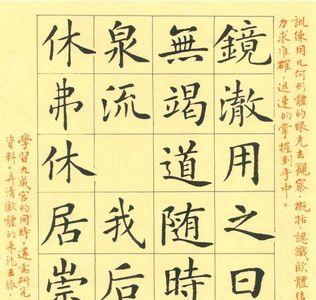 訓練用几何形體的眼光去觀察、概括、認識歐體结
力求准確、迅速的掌握到手中。
鏡澈用之日
無竭道随時
泉流我后
休弗休居崇
學習九成宮的同時。還需研
資料。弄清歐體的来龙去脉